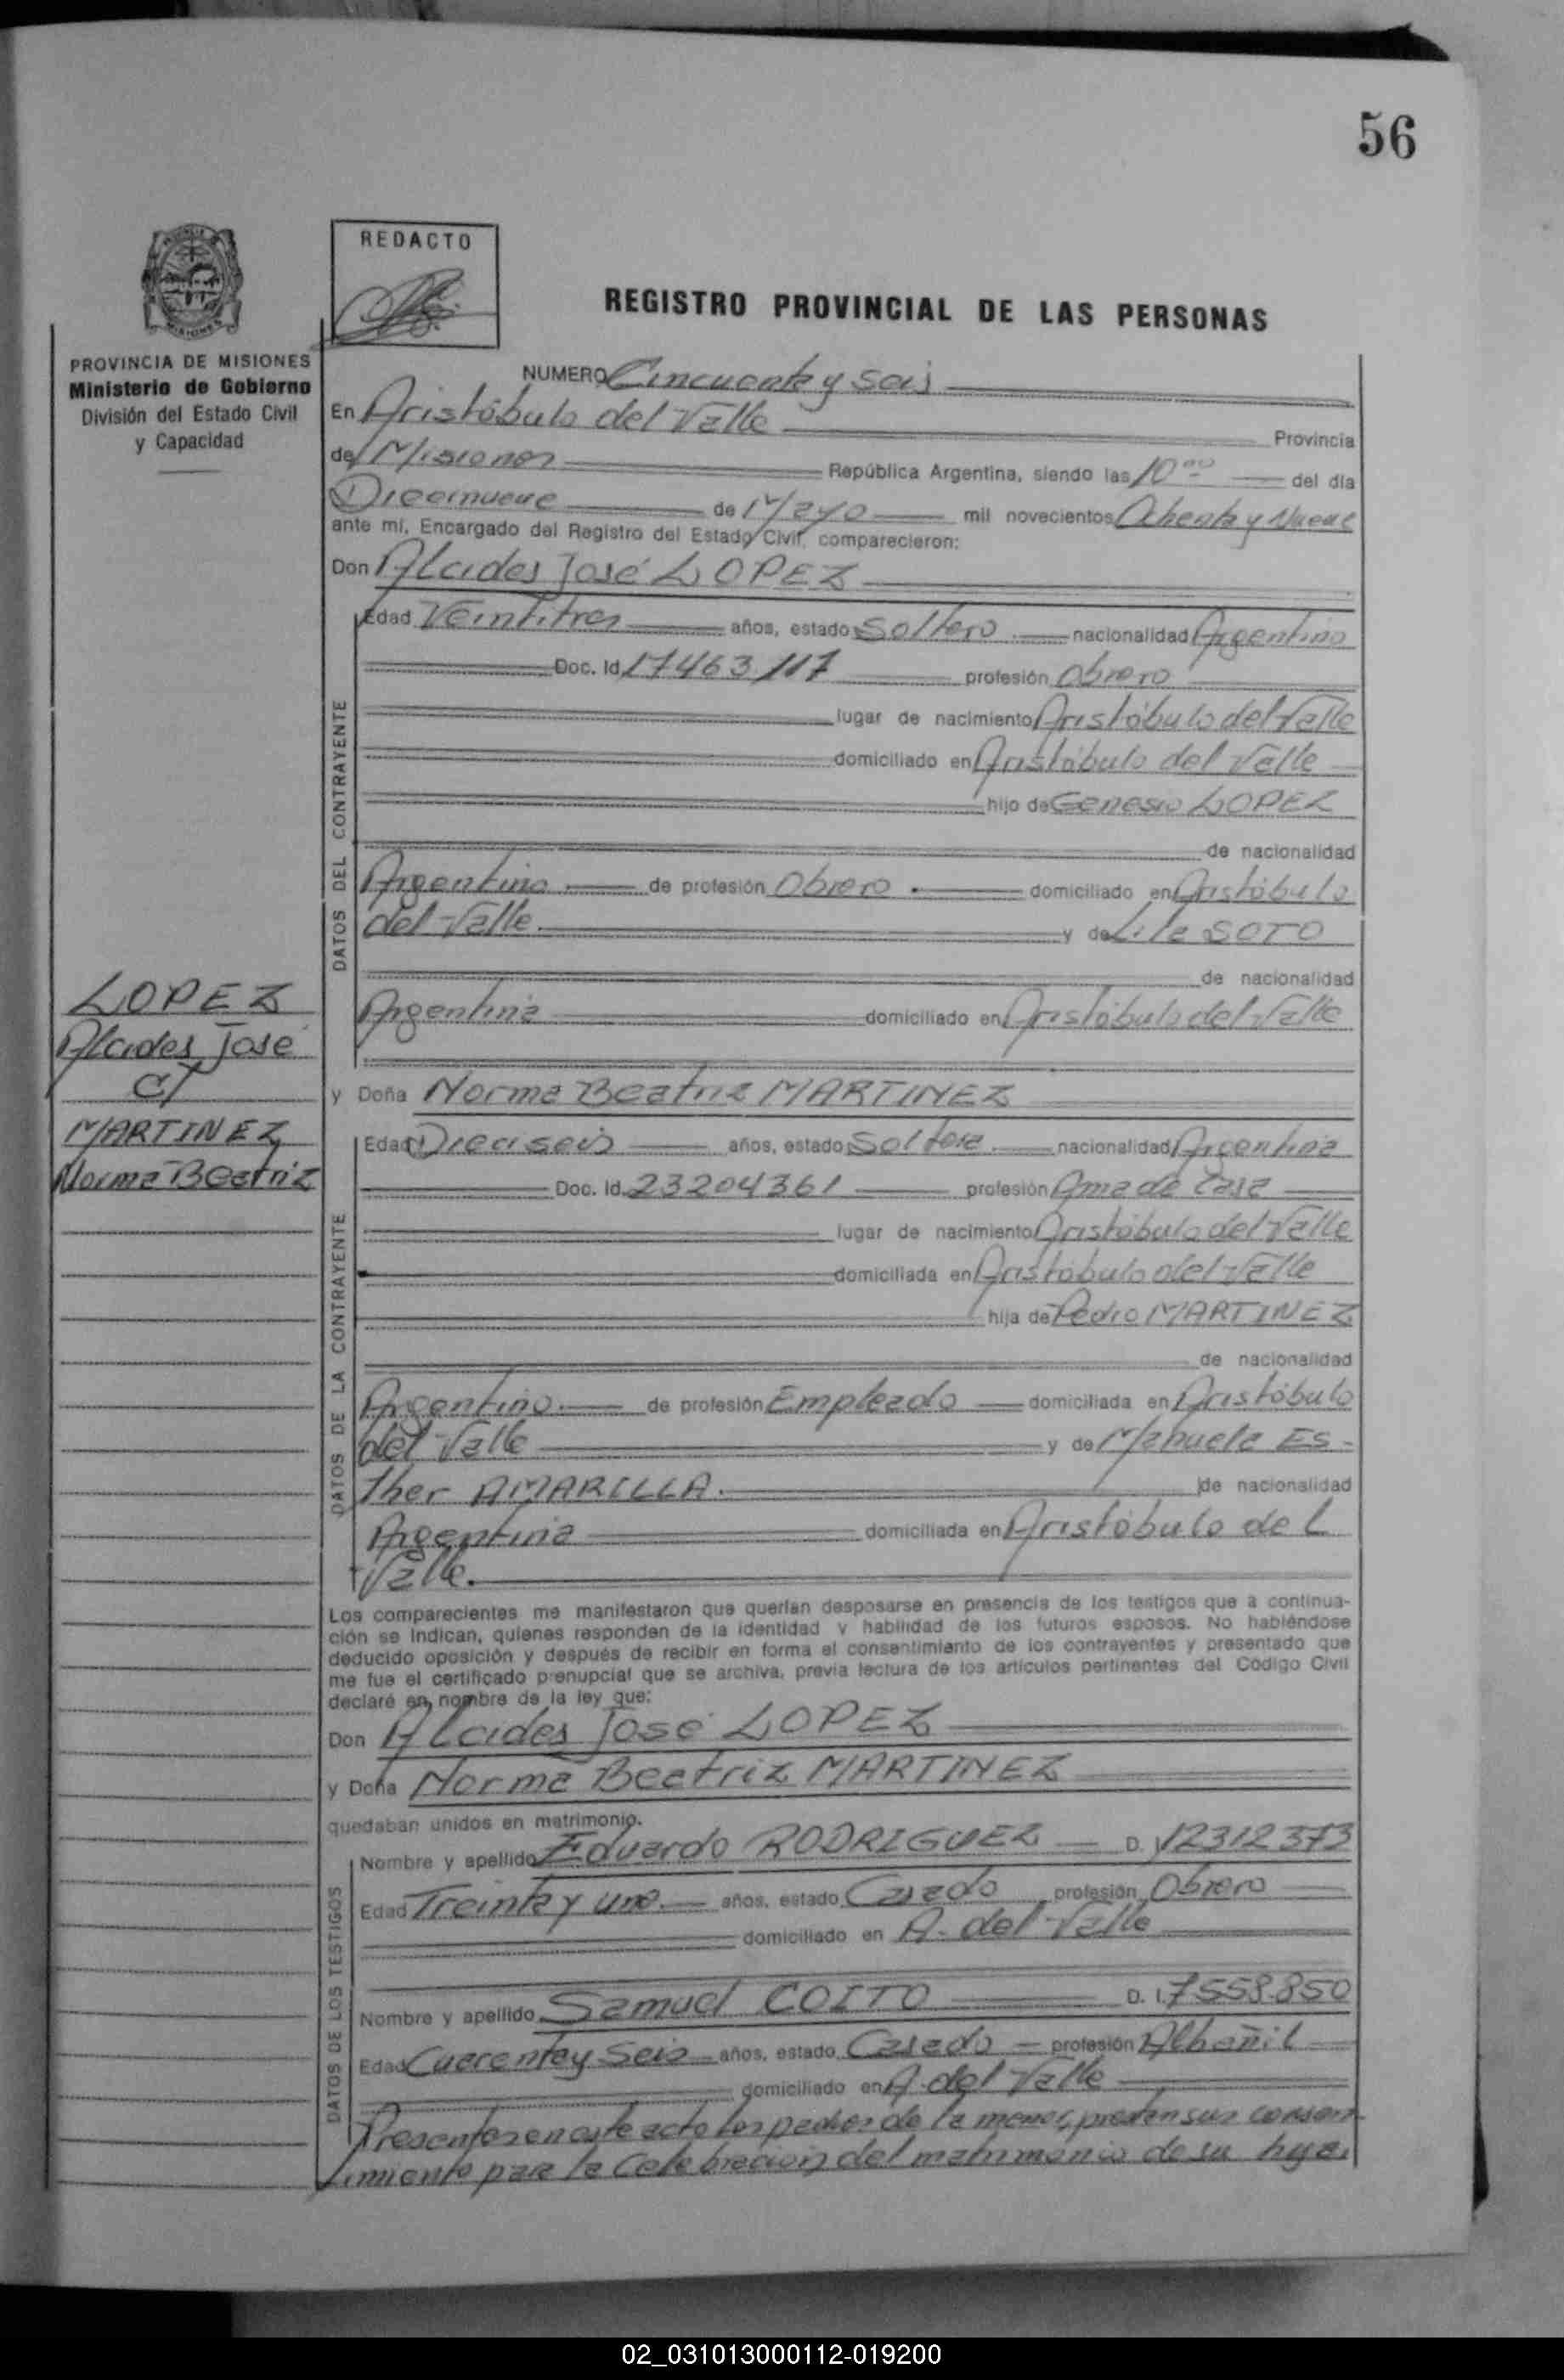 56
REDACTO
REGISTRO PROVINCIAL DE LAS PERSONAS
PROVINCIA DE MISIONES
Ministerio de Gobierno
División del Estado Civil
y Capacidad
NUMERO Cincuenta y Seis
En Aristóbulo del Valle Provincia
de Misiones República Argentina, siendo las 10 00 del día
Diecinueve de Mayo mil novecientos Ochenta y Nueve
ante mí, Encargado del Registro del Estado Civil, comparecieron:
Don Alcides José LOPEZ
Edad Veintitres años, estado Soltero nacionalidad Argentino
Doc. Id. 17463117 profesión Obrero
lugar de nacimiento Aristóbulo del Valle
domiciliado en Aristóbulo del Valle
hijo de Genesio LOPEZ
de nacionalidad
Argentino de profesión Obrero domiciliado en Aristóbulo
del Valle. y de Lila SOTO
de nacionalidad
Argentina domiciliado en Aristóbulo del Valle
DATOS DEL CONTRAYENTE
LOPEZ
Alcides José
C/
MARTINEZ
Norma Beatriz
y Doña Norma Beatriz MARTINEZ
Edad Dieciseis años, estado Soltera nacionalidad Argentina
Doc. Id. 23204361 profesión Ama de Casa
lugar de nacimiento Aristóbulo del Valle
domiciliada en Aristóbulo del Valle
hija de Pedro MARTINEZ
de nacionalidad
Argentino. de profesión Empleado domiciliada en Aristóbulo
del Valle y de Manuela Es-
ther AMARILLA. de nacionalidad
Argentina domiciliada en Aristóbulo del
Valle.
DATOS DE LA CONTRAYENTE
Los comparecientes me manifestaron que querían desposarse en presencia de los testigos que a continua-
ción se indican, quienes responden de la identidad y habilidad de los futuros esposos. No habiéndose
deducido oposición y después de recibir en forma el consentimiento de los contrayentes y presentado que
me fue el certificado prenupcial que se archiva, previa lectura de los artículos pertinentes del Código Civil
declaré en nombre de la ley que:
Don Alcides José LOPEZ
y Doña Norma Beatriz MARTINEZ
quedaban unidos en matrimonio.
Nombre y apellido Eduardo RODRIGUEZ D. I. 12312373
Edad Treinta y uno. años, estado Casado profesión Obrero
domiciliado en A. del Valle
Nombre y apellido Samuel COITO D. I. 7558.850
Edad Cuarenta y Seis años, estado Casado profesión Albañil
domiciliado en A. del Valle
DATOS DE LOS TESTIGOS
Presentes en este acto los padres de la menor, prestan sus consen-
timiento para la Celebracion del matrimonio de su hija.
02_031013000112-019200